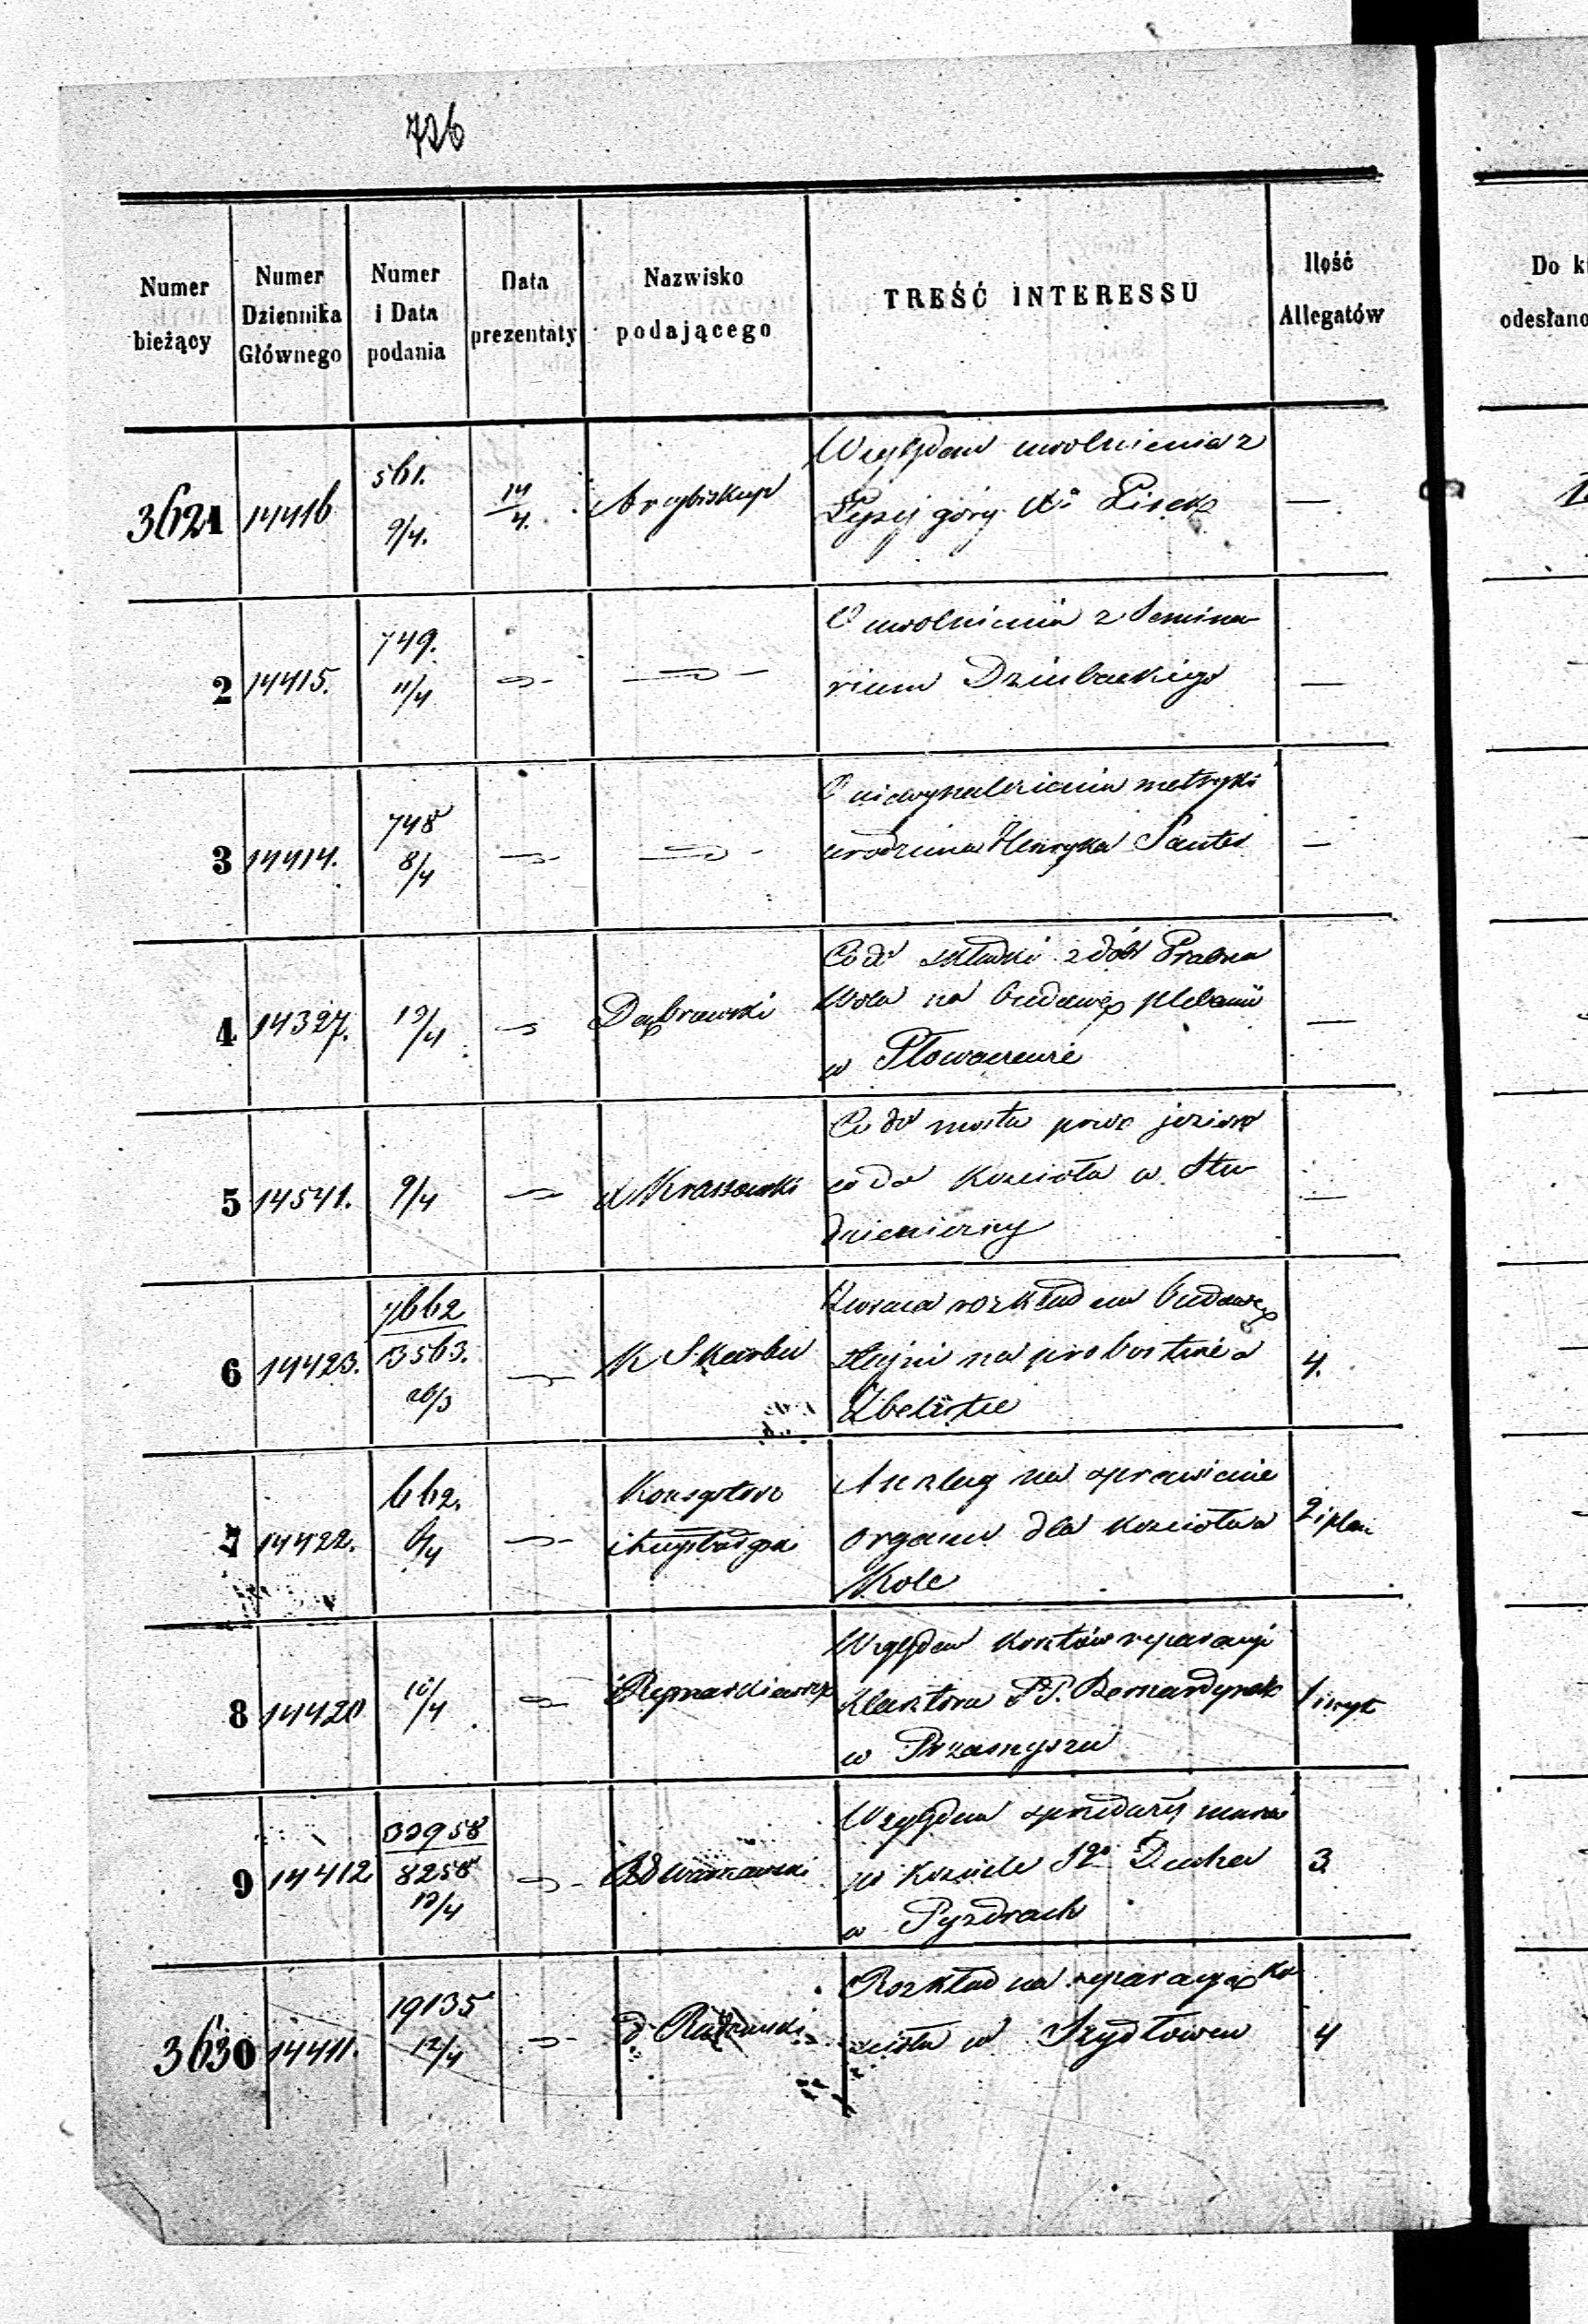 726
Numer bieżący
Numer Dziennika Głównego
Numer i Data podania
Data prezentaty
Nazwisko podającego
TREŚĆ INTERESSU
Ilość Allegatów
Do k
odesłano
3621 14416 561. 9/4. 14/4. Arcybiskup
Względem uwolnienia z
Łysej góry Xa Lisek
—
2 14415. 749. 11/4
O uwolnieniu z Semina-
rium Dziubackiego
—
3 14414. 748 8/4
O niewynalezieniu metryki
urodzenia Henryka Sauter
—
4 14327. 13/4 Dąbrowski
Co do składki z dóbr
Wola na budowę plebanii
w
—
5 14541. 9/4 X Kraszewski
Co do mostu przez jezioro
co do Kościoła w Stu-
dzienicznej
—
6 14423. 7662 13563. 26/3 K Skarbu
Zwraca rozkład na budowę
stajni na probostwie w
4.
7 14422. 662. 6/4 Konsystorz
Anszlag na sprawienie
organu dla kościoła w
Kole
2 i plan
8 14420 10/4
Względem kosztów reparacji
klasztoru PP. Bernardynek
w Przasnyszu
1 i
9 14412 8258 12/4 Rd Warszawski
Względem sprzedaży muru
po Kościele Sgo Ducha
w Pyzdrach
3
3630 14411. 19135 12/4 d Radomski
Rozkład na reparacyę Ko-
ścioła w Szydłowcu
4